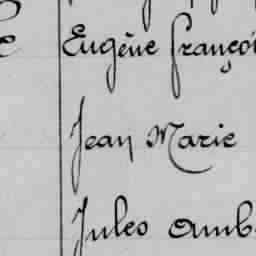 Eugène Françoi
Jean Marie
Jules Amb